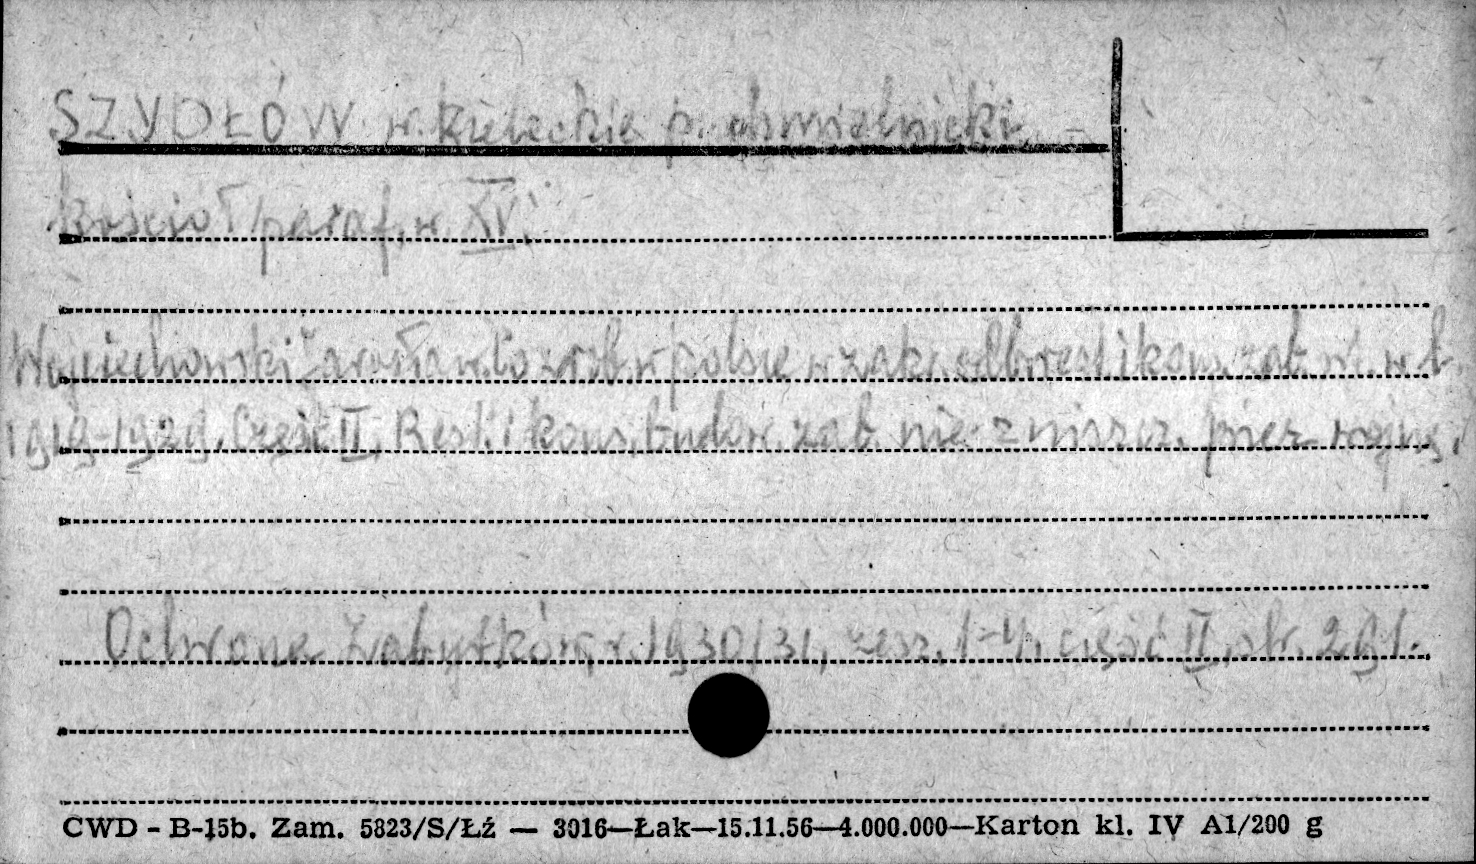 SZYDŁÓW w. kieleckie p. chmielnicki
kościół paraf. w. XV.
Wojciechowski Jarosław. Co zrob. w Polsce w zakr. odb. rest. i kons. zab. szt. w l.
1919-1929. Część II. Rest. i kons. budow. zab. nie zniszcz. przez wojnę.
Ochrona Zabytków, r. 1930/31, zesz. 1-4, część II, str. 291.
CWD - B-15b. Zam. 5823/S/Łź — 3016—Łak—15.11.56—4.000.000—Karton kl. IV A1/200 g